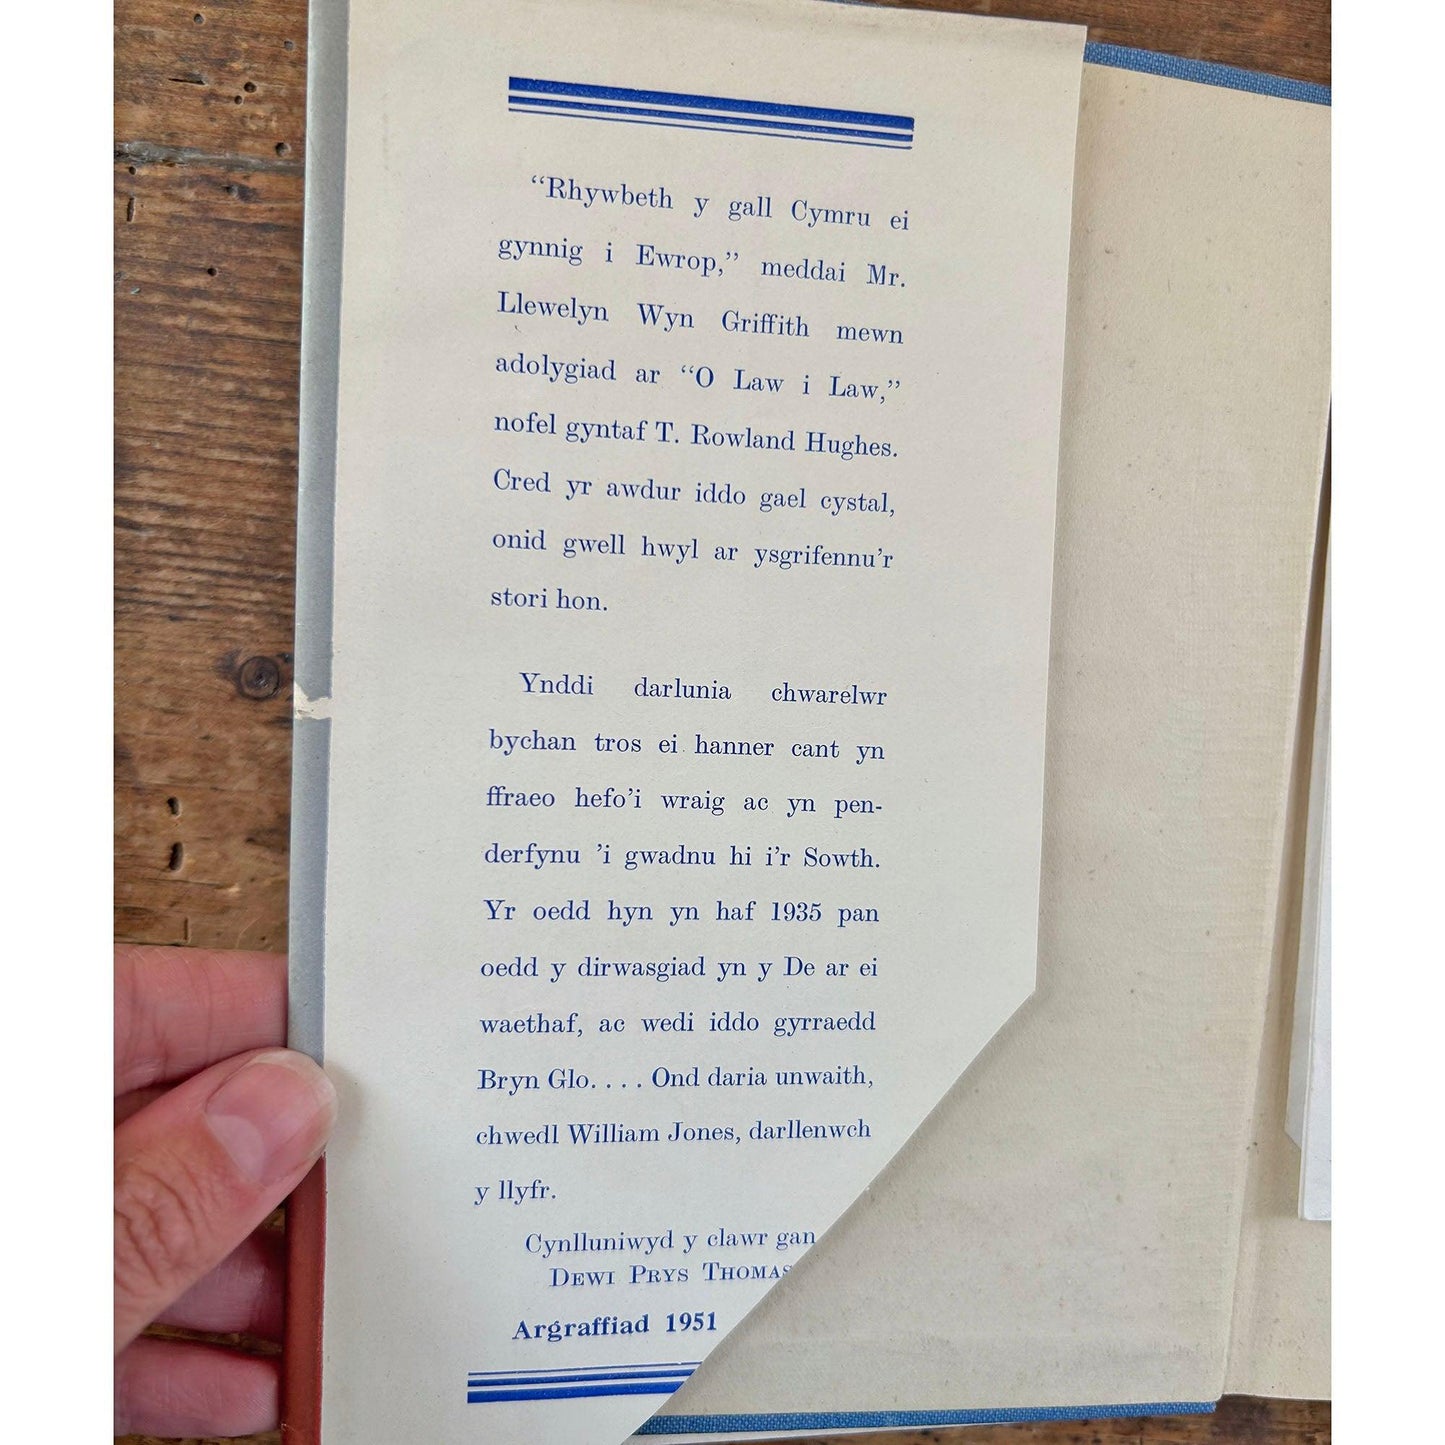 “Rhywbeth y gall Cymru ei
gynnig i Ewrop,” meddai Mr.
Llewelyn Wyn Griffith mewn
adolygiad ar “O Law i Law,”
nofel gyntaf T. Rowland Hughes.
Cred yr awdur iddo gael cystal,
onid gwell hwyl ar ysgrifennu’r
stori hon.
Ynddi darlunia chwarelwr
bychan tros ei hanner cant yn
ffraeo hefo’i wraig ac yn pen-
derfynu ’i gwadnu hi i’r Sowth.
Yr oedd hyn yn haf 1935 pan
oedd y dirwasgiad yn y De ar ei
waethaf, ac wedi iddo gyrraedd
Bryn Glo. . . . Ond daria unwaith,
chwedl William Jones, darllenwch
y llyfr.
Cynlluniwyd y clawr gan
DEWI PRYS THOMAS
Argraffiad 1951